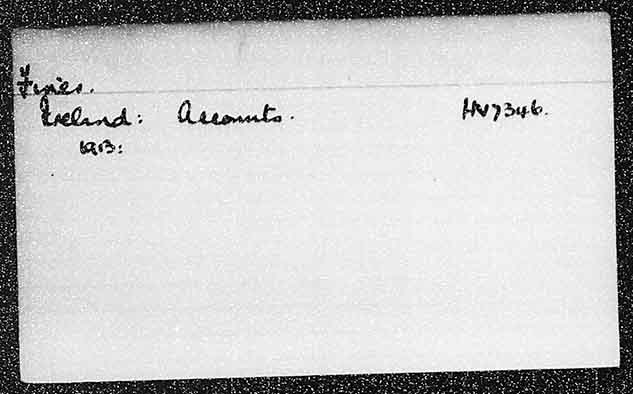 Fines.
Ireland: Accounts. HV7346.
1913: